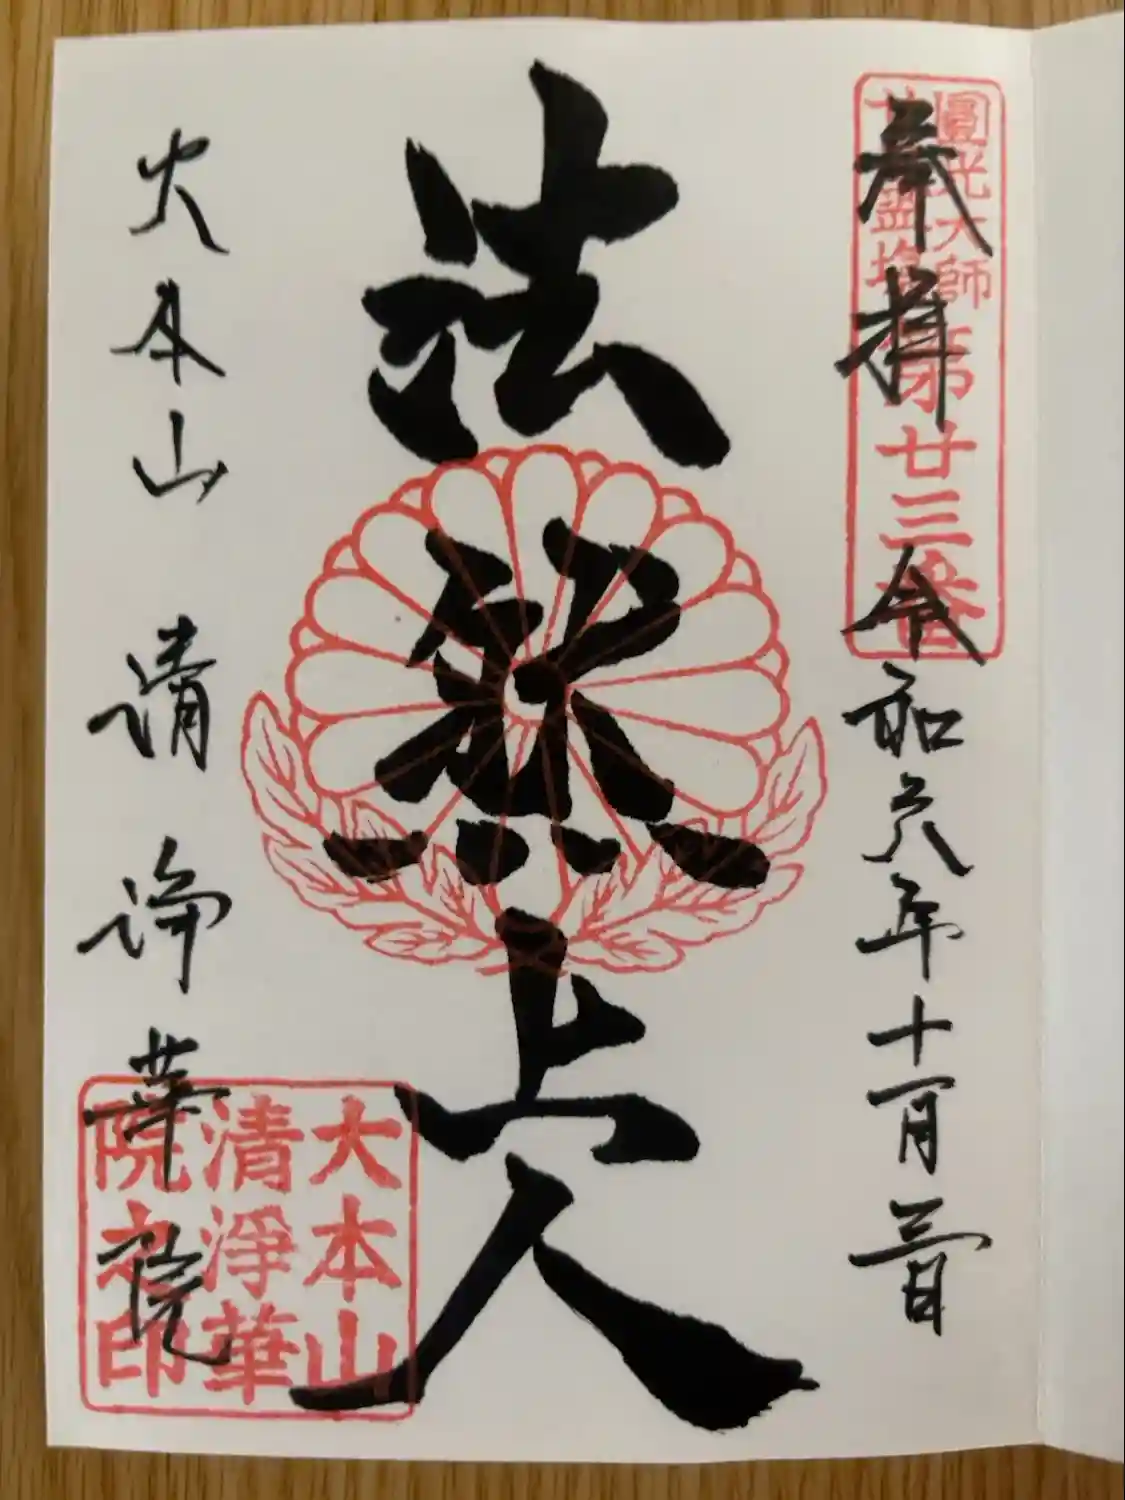 圓光大師
廿五霊場
第廿三番
奉拝 令和六年十一月三日
法然上人
大本山 清浄華院
大本山
清淨華
院之印